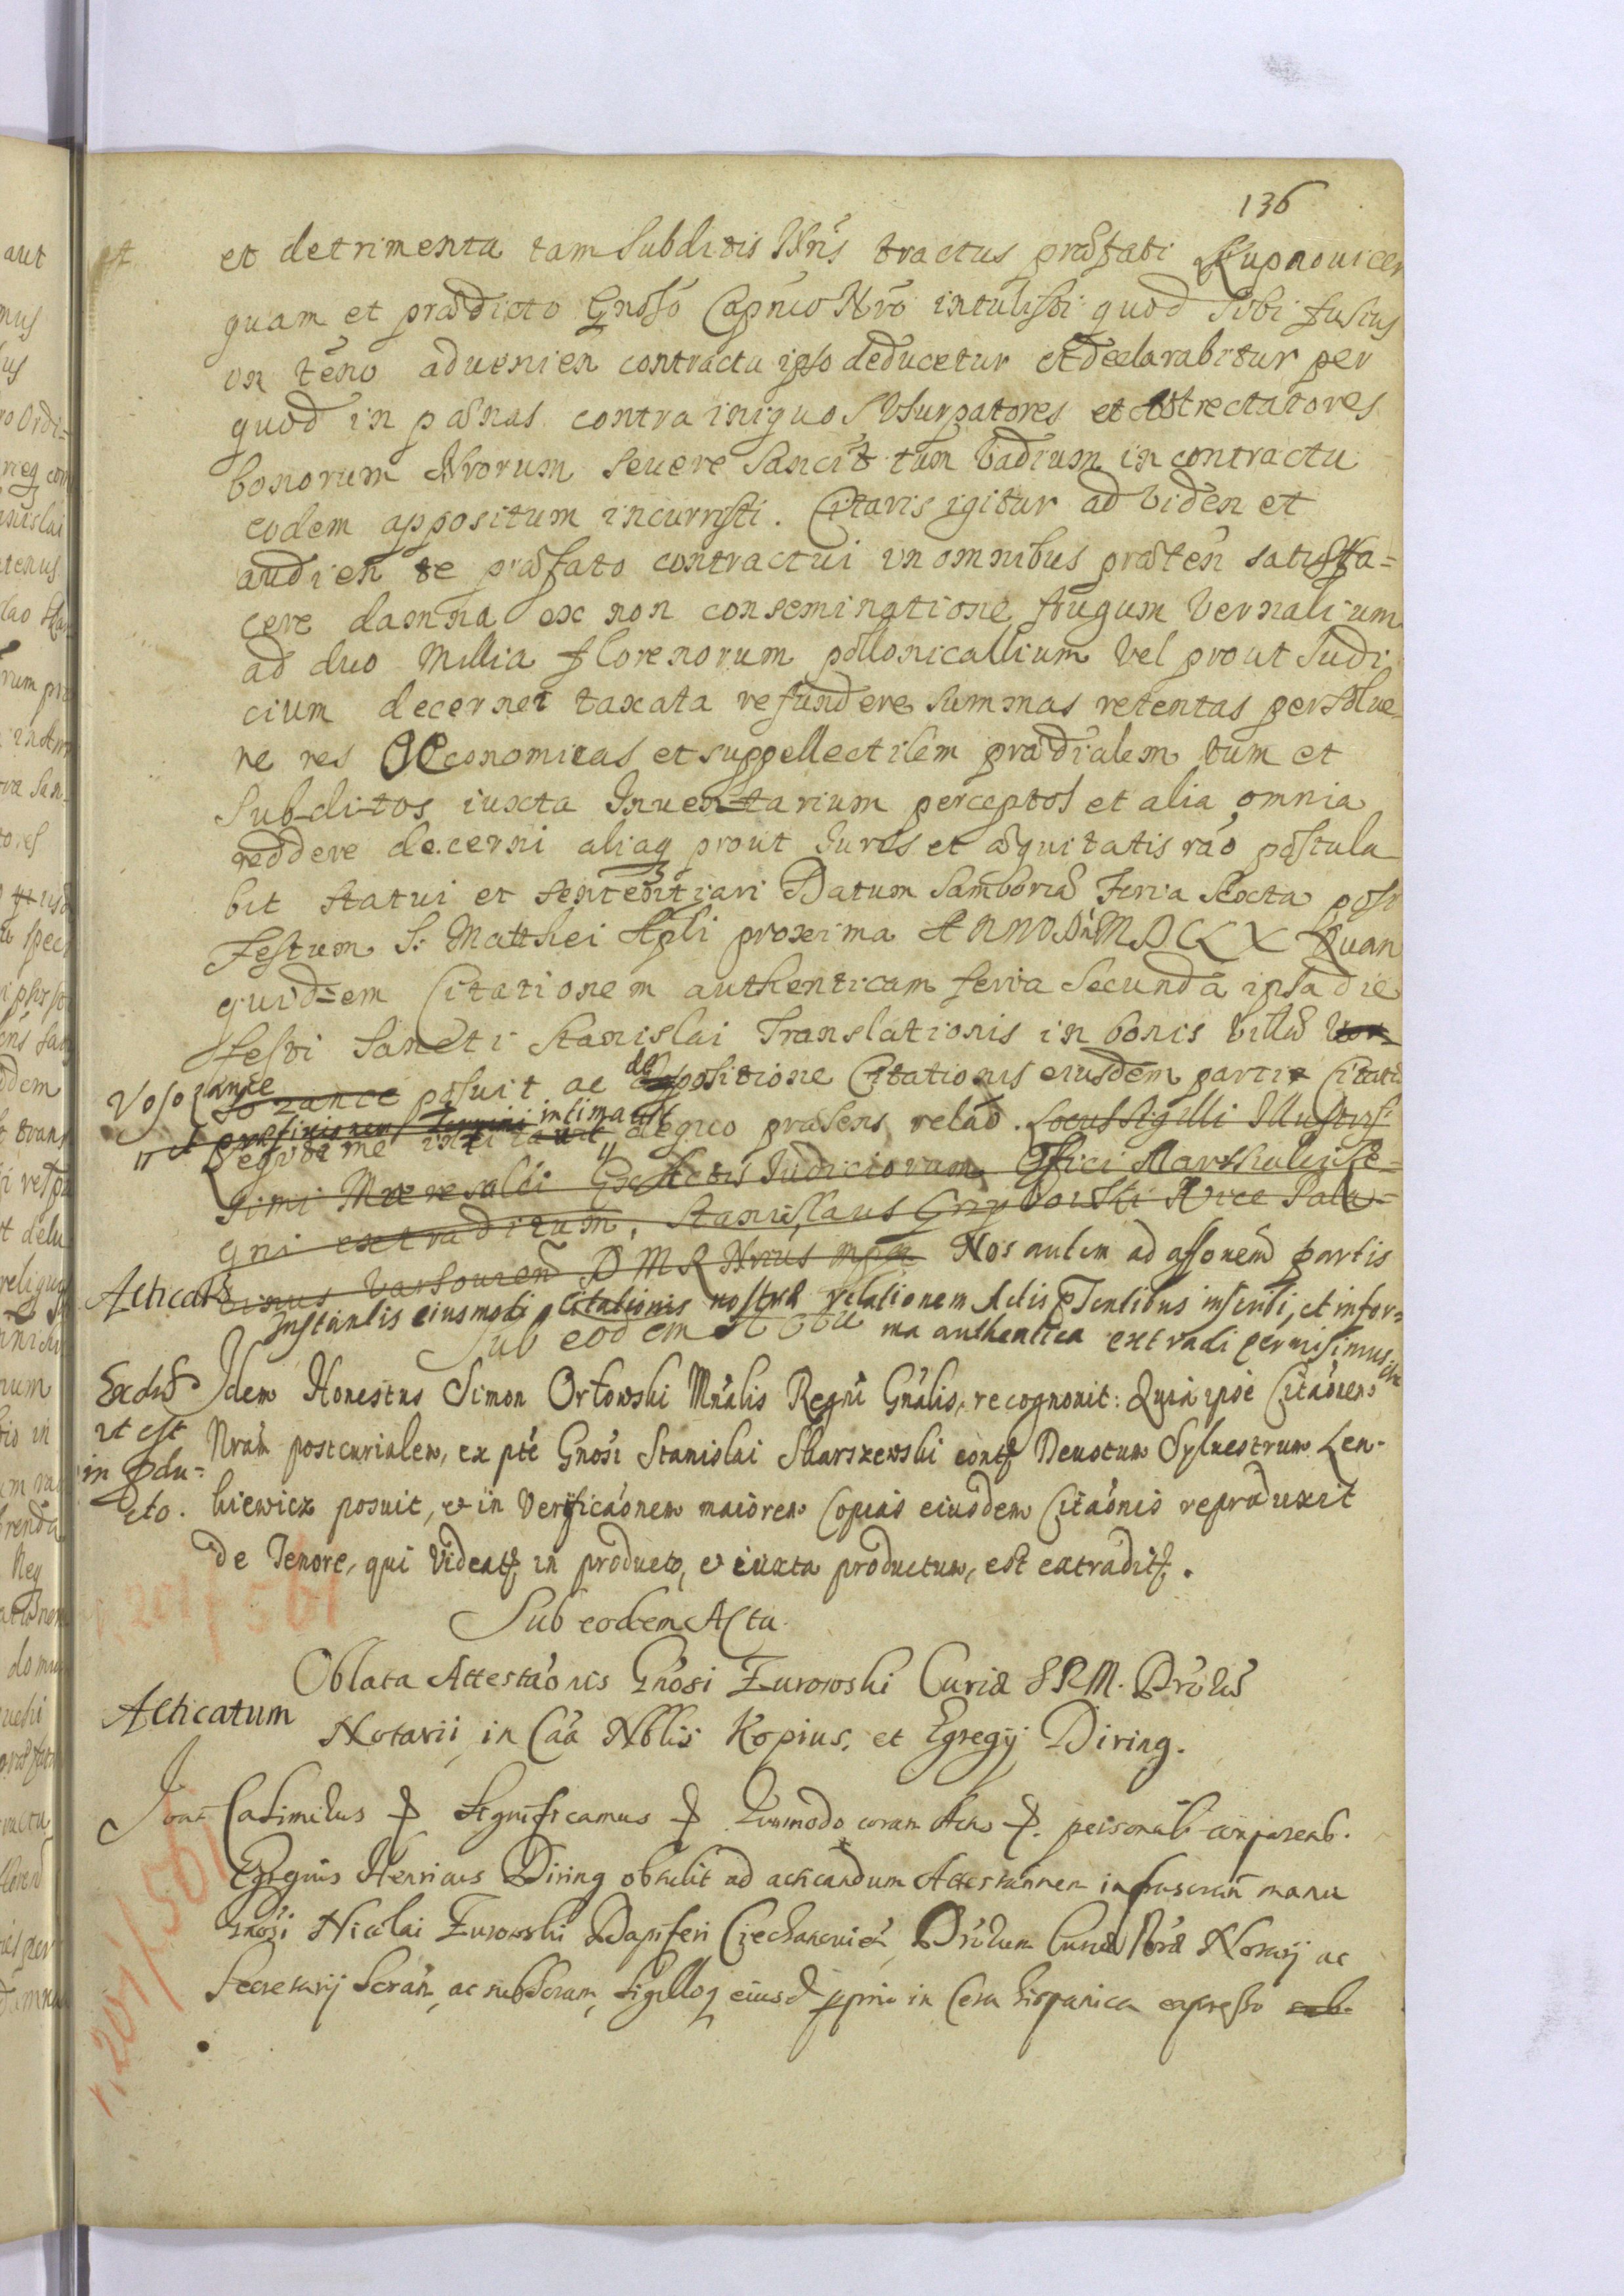 136
et detrimenta tam Subditis Nr̃is tractus præfati Kupnouicen
quam et prædicto Gnoso Capneo Nrõ intulisti quod tibi fusius
in teño aduenien contractu ipso deducetur et declarabitur per
quod in pænas contra iniquos Usurpatores et detrectatores
bonorum Nrorum seuere Sancit tum Vadium in contractu
eodem appositum incurristi. Citaris igitur ad viden et
audien te præfato contractui in omnibus præteñ satisfa=
cere damna ex non conseminatione frugum Vernalium
ad duo Millia florenorum pollonicallium Vel prout Judi
cium decernet taxata refundere summas retentas persolue
re res OEconomicas et suppellectilem prædialem tum et
Subditos iuxta Inuentarium perceptos et alia omnia
reddere decerni aliaq prout Iuris et æquitatis rao postula
bit statui et sententiari Datum Samboriæ Feria Sexta post
Festum S. Matthei Apli proxima ANNO Dñi MDCLX Quan
quidem Citationem authenticam feria Secunda ipsa die
festi Sancti Stanislai Translationis in bonis Villæ
Voso zance posuit ac de positione Citationis eiusdem parti Citatæ
præfixionem Termini intimauit
deque præsens relaõ. Locus Sigilli Illustris
simi Maresalci Ex Actis Judiciorum Officii Marskalci Re=
gni extraditum. Stanislaus Grzybowski Vice Pala=
tinus Varsouien S M R Nrius mpa Nos autem ad affonem partis
Acticat
Instantis eiusmodi citationis nostræ relationem Actis pntibus inscribi, et in for=
ma authentica extradi permisimus
Sub eodem Actu
Exdũs ut est in pdu= cto.
Idem Honestus Simon Orłowski Mñalis Regni Gñalis, recognouit: Quia ipse Citãonem
Nram postcurialem, ex pte Gnosi Stanislai Skarszewski contr Deuotum Syluestrum Len-
kiewicz posuit, et in Verificãonem maiorem Copias eiusdem Citãonis reproduxit
de Tenore, qui Videatr in producto, et iuxta productum, est extraditr.
Sub eodem Actu.
Oblata Attestãonis Gnosi Zurowski Curiæ SRM. Drũlis
Acticatum
Notarii in Caã Nbllis Kopius, et Egregij Diring.
Joañ Casimirus Significamus Quomodo coram Actis personalr comparens.
Egregius Henricus Diring obtulit ad acticandum Attestãonem infrascrañ manu
Gnosi Nicolai Zurowski Dapiferi Ciechanouien, Drũlium Curiæ Nræ Notarij ac
Secretarij Scrañ, ac subscram, sigilloq eiusd pprio in Cera hispanica expresso